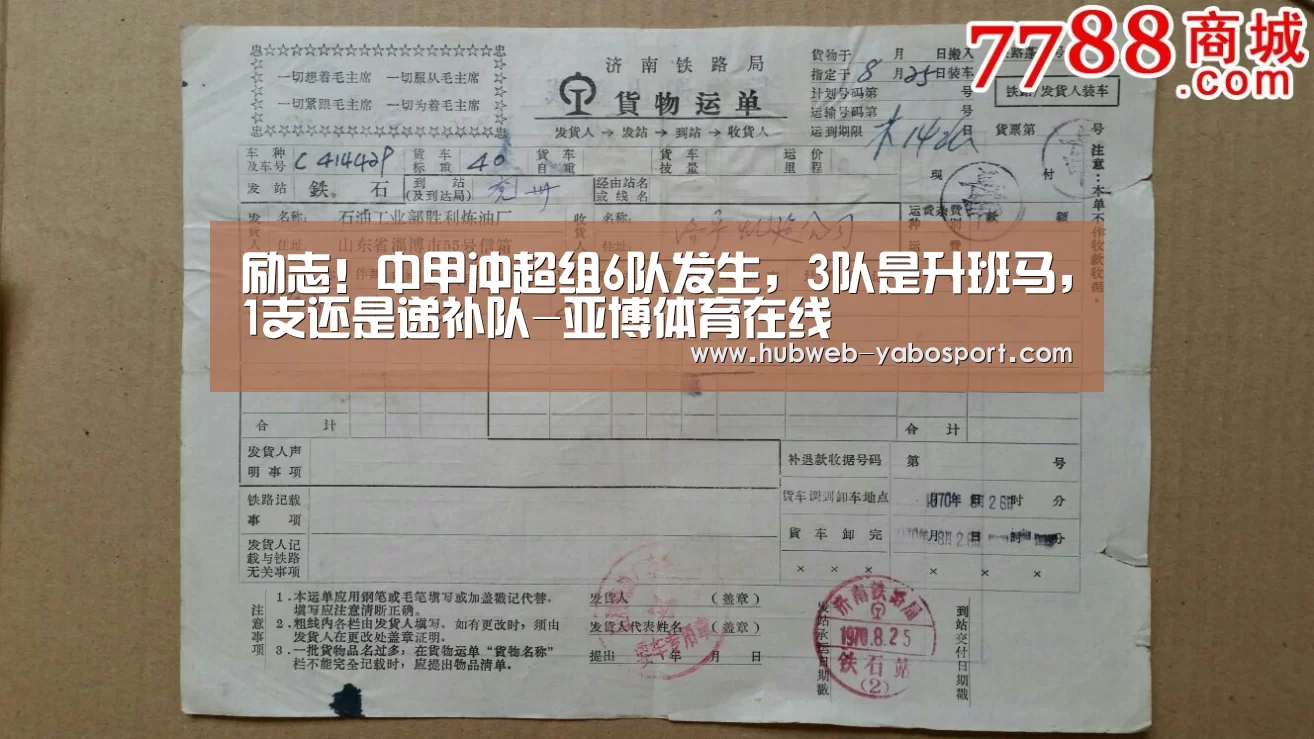 7788商城
忠☆☆☆☆☆☆☆☆☆☆☆☆☆☆☆☆☆忠
一切想着毛主席 一切服从毛主席
一切紧跟毛主席 一切为着毛主席
忠☆☆☆☆☆☆☆☆☆☆☆☆☆☆☆☆☆忠
济南铁路局
貨物运单
发货人→发站→到站→收货人
貨物于 月 日搬入
指定于8月25日装车
计划号码第 号
运输号码第 号
运到期限 日
铁路/发货人装车
貨票第 号
车种及车号 C414429 货车标重 40 货车自重 货车技量 运价里程
发站 鉄石 到站(及到达局) 兖州 经由站名或线名
现 付
发货人 名称: 石油工业部胜利炼油厂
住址: 山东省淄博市55号信箱
收货人 名称:
住址:
注意:本单不作收款收据。
励志!中甲冲超组6队发生,3队是升班马,
1支还是递补队-亚博体育在线
www.hubweb-yabosport.com
合计
合计
发货人声明事项
铁路记载事项
发货人记载与铁路无关事项
补退款收据号码 第 号
货车调到卸车地点 1970年 8月26日 时 分
貨车卸完 1970年 8月26日 时 分
× × × × ×
注意事项
1.本运单应用鋼笔或毛笔填写或加盖戳记代替,
填写应注意清晰正确。
2.粗线内各栏由发货人填写。如有更改时,须由
发货人在更改处盖章证明。
3.一批货物品名过多,在货物运单“貨物名称”
栏不能完全记载时,应提出物品清单。
发货人 (盖章)
发货人代表姓名 (盖章)
提出 年 月 日
专用章
发站承运日期戳
济南铁路局
1970.8.25
铁石站
(2)
到站交付日期戳